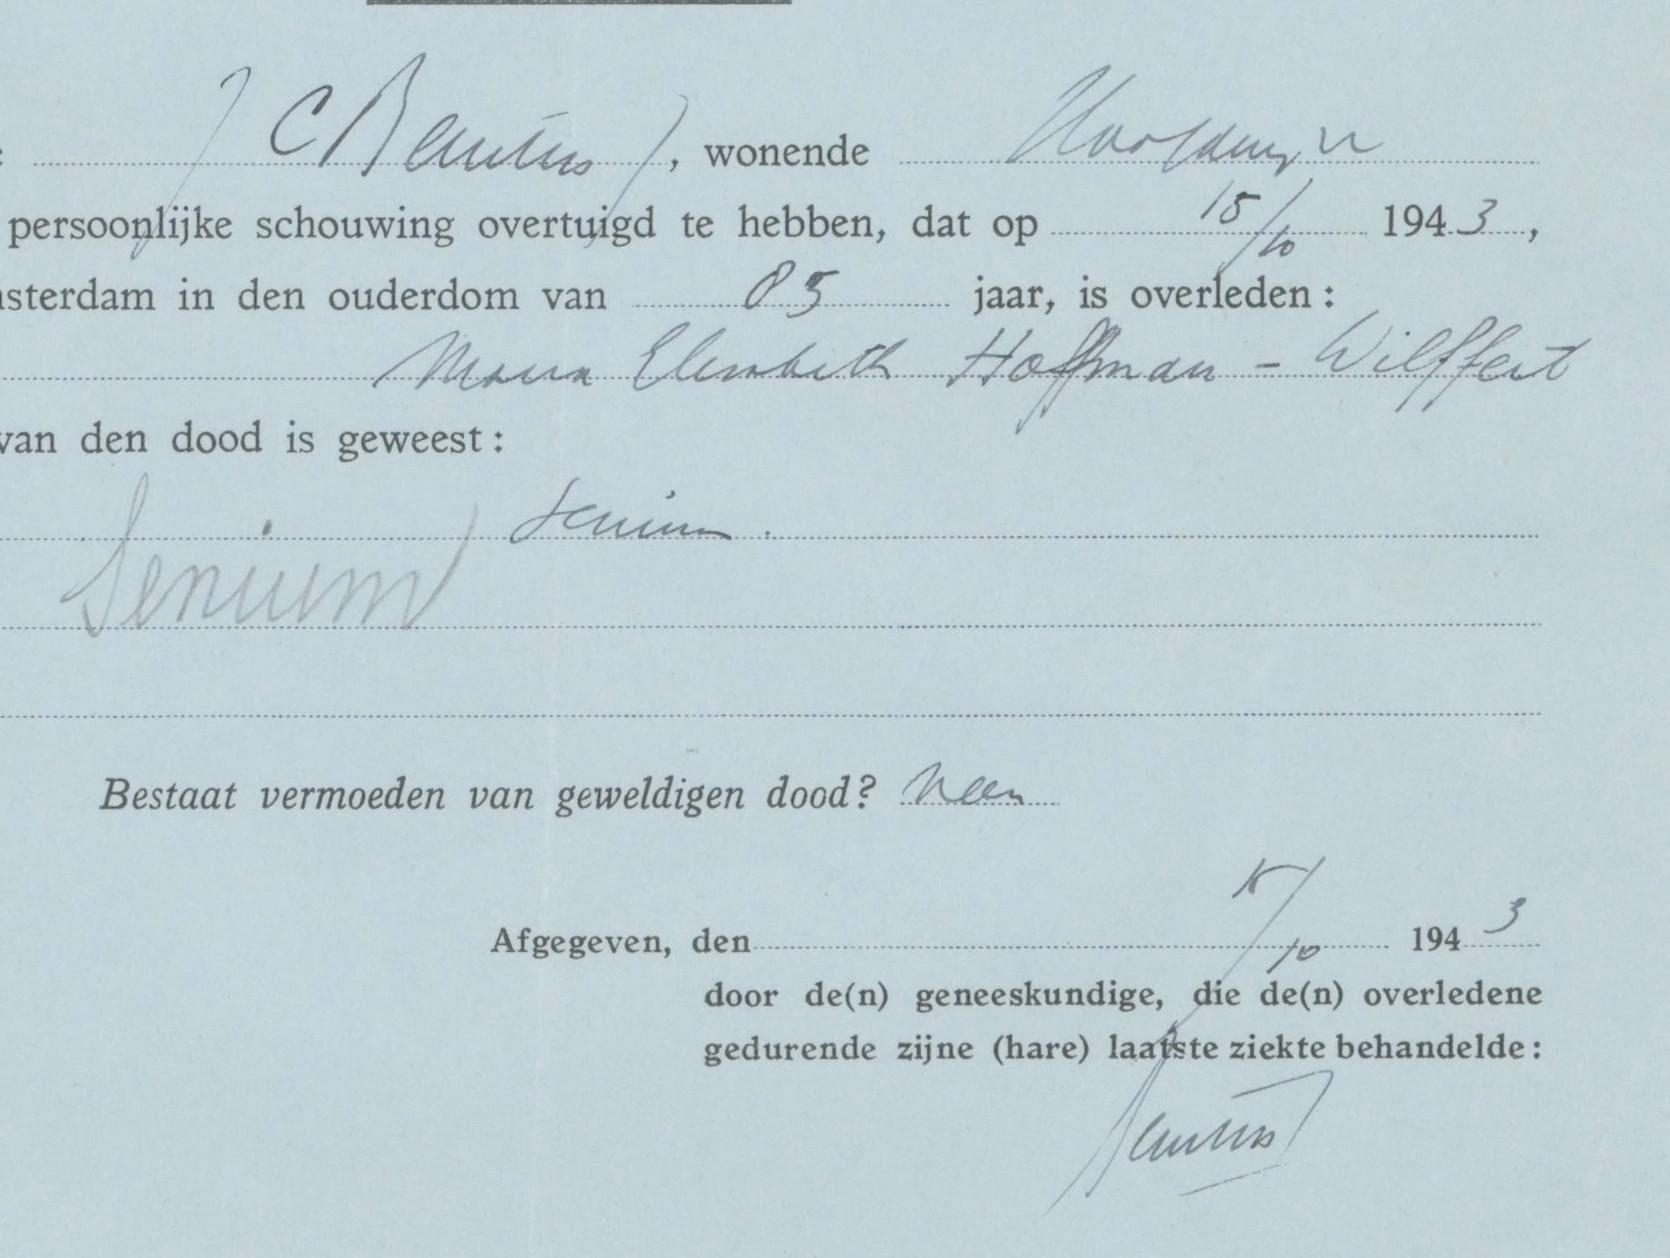 : J C , wonende
persoonlijke schouwing overtuigd te hebben, dat op 15/10 1943,
sterdam in den ouderdom van 85 jaar, is overleden:
Maria Elisabeth Hoffman - Wilffert
van den dood is geweest:
Senium.
Senium
Bestaat vermoeden van geweldigen dood? Neen
Afgegeven, den 15/10 1943
door de(n) geneeskundige, die de(n) overledene
gedurende zijne (hare) laatste ziekte behandelde: